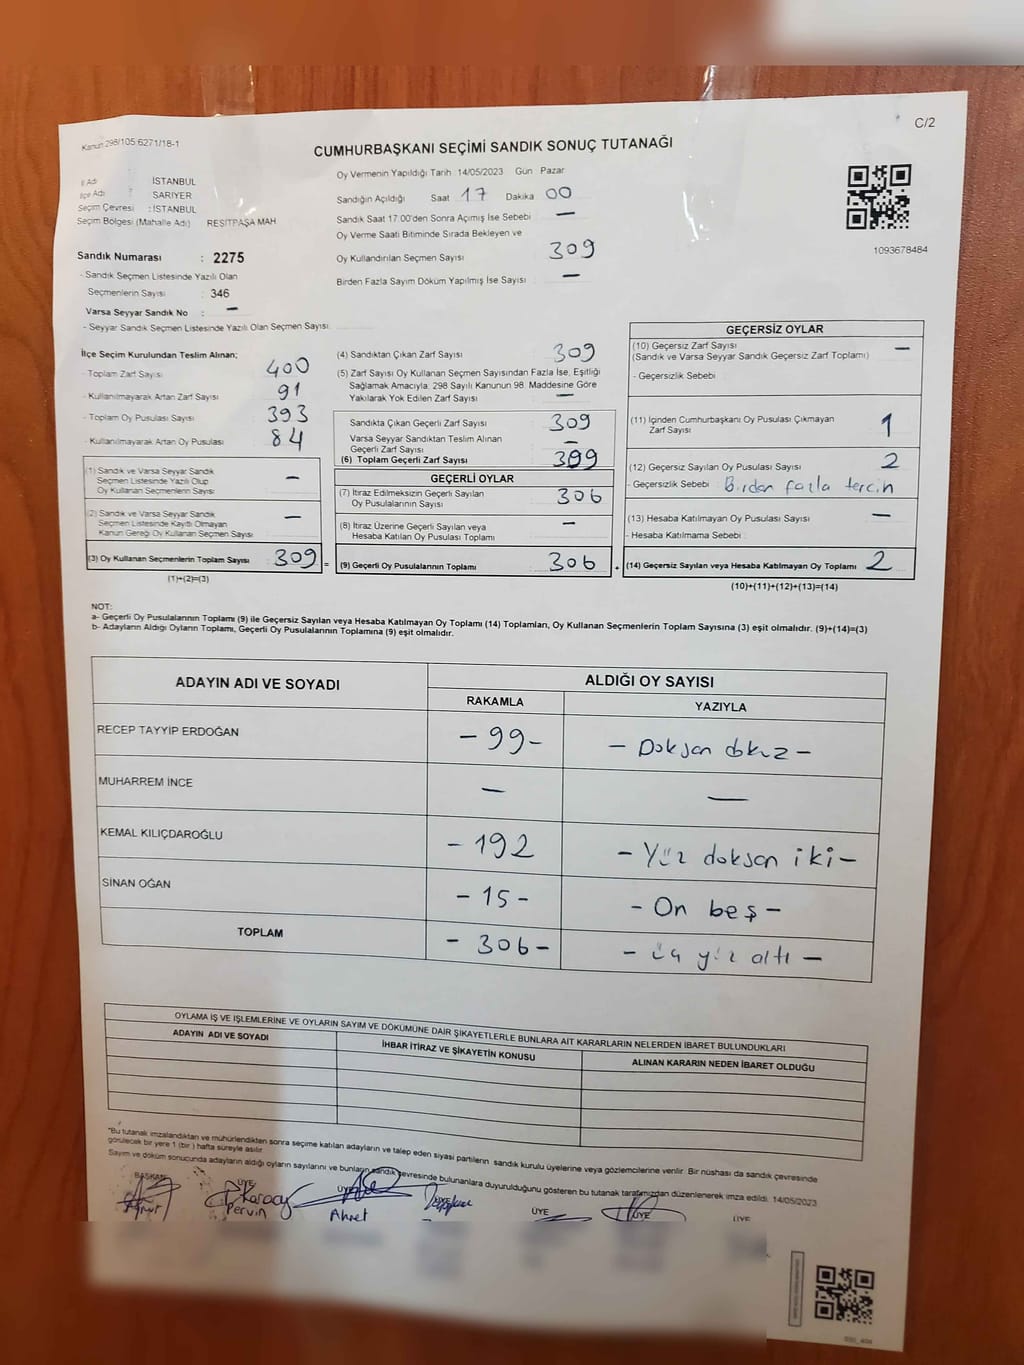 C/2
Kanun 298/105 6271/18-1
CUMHURBAŞKANI SEÇİMİ SANDIK SONUÇ TUTANAĞI
İl Adı : İSTANBUL
İlçe Adı : SARIYER
Seçim Çevresi : İSTANBUL
Seçim Bölgesi (Mahalle Adı) REŞİTPAŞA MAH
Sandık Numarası : 2275
- Sandık Seçmen Listesinde Yazılı Olan
Seçmenlerin Sayısı : 346
Varsa Seyyar Sandık No : —
- Seyyar Sandık Seçmen Listesinde Yazılı Olan Seçmen Sayısı
Oy Vermenin Yapıldığı Tarih 14/05/2023 Gün Pazar
Sandığın Açıldığı Saat 17 Dakika 00
Sandık Saat 17:00'den Sonra Açımış İse Sebebi —
Oy Verme Saati Bitiminde Sırada Bekleyen ve
Oy Kullandırılan Seçmen Sayısı 309
Birden Fazla Sayım Döküm Yapılmış İse Sayısı —
1093678484
İlçe Seçim Kurulundan Teslim Alınan;
- Toplam Zarf Sayısı 400
- Kullanılmayarak Artan Zarf Sayısı 91
- Toplam Oy Pusulası Sayısı 393
- Kullanılmayarak Artan Oy Pusulası 84
(1) Sandık ve Varsa Seyyar Sandık
Seçmen Listesinde Yazılı Olup
Oy Kullanan Seçmenlerin Sayısı —
(2) Sandık ve Varsa Seyyar Sandık
Seçmen Listesinde Kayıtlı Olmayan
Kanun Gereği Oy Kullanan Seçmen Sayısı —
(3) Oy Kullanan Seçmenlerin Toplam Sayısı 309 =
(1)+(2)=(3)
(4) Sandıktan Çıkan Zarf Sayısı 309
(5) Zarf Sayısı Oy Kullanan Seçmen Sayısından Fazla İse, Eşitliği
Sağlamak Amacıyla 298 Sayılı Kanunun 98. Maddesine Göre
Yakılarak Yok Edilen Zarf Sayısı —
Sandıkta Çıkan Geçerli Zarf Sayısı 309
Varsa Seyyar Sandıktan Teslim Alınan
Geçerli Zarf Sayısı —
(6) Toplam Geçerli Zarf Sayısı 309
GEÇERLİ OYLAR
(7) İtiraz Edilmeksizin Geçerli Sayılan
Oy Pusulalarının Sayısı 306
(8) İtiraz Üzerine Geçerli Sayılan veya
Hesaba Katılan Oy Pusulası Toplamı —
(9) Geçerli Oy Pusulalarının Toplamı 306 +
GEÇERSİZ OYLAR
(10) Geçersiz Zarf Sayısı
(Sandık ve Varsa Seyyar Sandık Geçersiz Zarf Toplamı) —
- Geçersizlik Sebebi
(11) İçinden Cumhurbaşkanı Oy Pusulası Çıkmayan
Zarf Sayısı 1
(12) Geçersiz Sayılan Oy Pusulası Sayısı 2
- Geçersizlik Sebebi Birden fazla tercih
(13) Hesaba Katılmayan Oy Pusulası Sayısı —
- Hesaba Katılmama Sebebi
(14) Geçersiz Sayılan veya Hesaba Katılmayan Oy Toplamı 2
(10)+(11)+(12)+(13)=(14)
NOT:
a- Geçerli Oy Pusulalarının Toplamı (9) ile Geçersiz Sayılan veya Hesaba Katılmayan Oy Toplamı (14) Toplamları, Oy Kullanan Seçmenlerin Toplam Sayısına (3) eşit olmalıdır. (9)+(14)=(3)
b- Adayların Aldığı Oyların Toplamı, Geçerli Oy Pusulalarının Toplamına (9) eşit olmalıdır.
ADAYIN ADI VE SOYADI ALDIĞI OY SAYISI
RAKAMLA YAZIYLA
RECEP TAYYİP ERDOĞAN - 99 - - Doksan dokuz -
MUHARREM İNCE — —
KEMAL KILIÇDAROĞLU - 192 - Yüz doksan iki -
SİNAN OĞAN - 15 - - On beş -
TOPLAM - 306 - - üç yüz altı -
OYLAMA İŞ VE İŞLEMLERİNE VE OYLARIN SAYIM VE DÖKÜMÜNE DAİR ŞİKAYETLERLE BUNLARA AİT KARARLARIN NELERDEN İBARET BULUNDUKLARI
ADAYIN ADI VE SOYADI İHBAR İTİRAZ VE ŞİKAYETİN KONUSU ALINAN KARARIN NEDEN İBARET OLDUĞU
*Bu tutanak imzalandıktan ve mühürlendikten sonra seçime katılan adayların ve talep eden siyasi partilerin sandık kurulu üyelerine veya gözlemcilerine verilir. Bir nüshası da sandık çevresinde
görülecek bir yere 1 (bir) hafta süreyle asılır.
Sayım ve döküm sonucunda adayların aldığı oyların sayılarını ve bunların sandık çevresinde bulunanlara duyurulduğunu gösteren bu tutanak tarafımızdan düzenlenerek imza edildi. 14/05/2023
BAŞKAN ÜYE ÜYE ÜYE ÜYE ÜYE
Pervin Ahmet